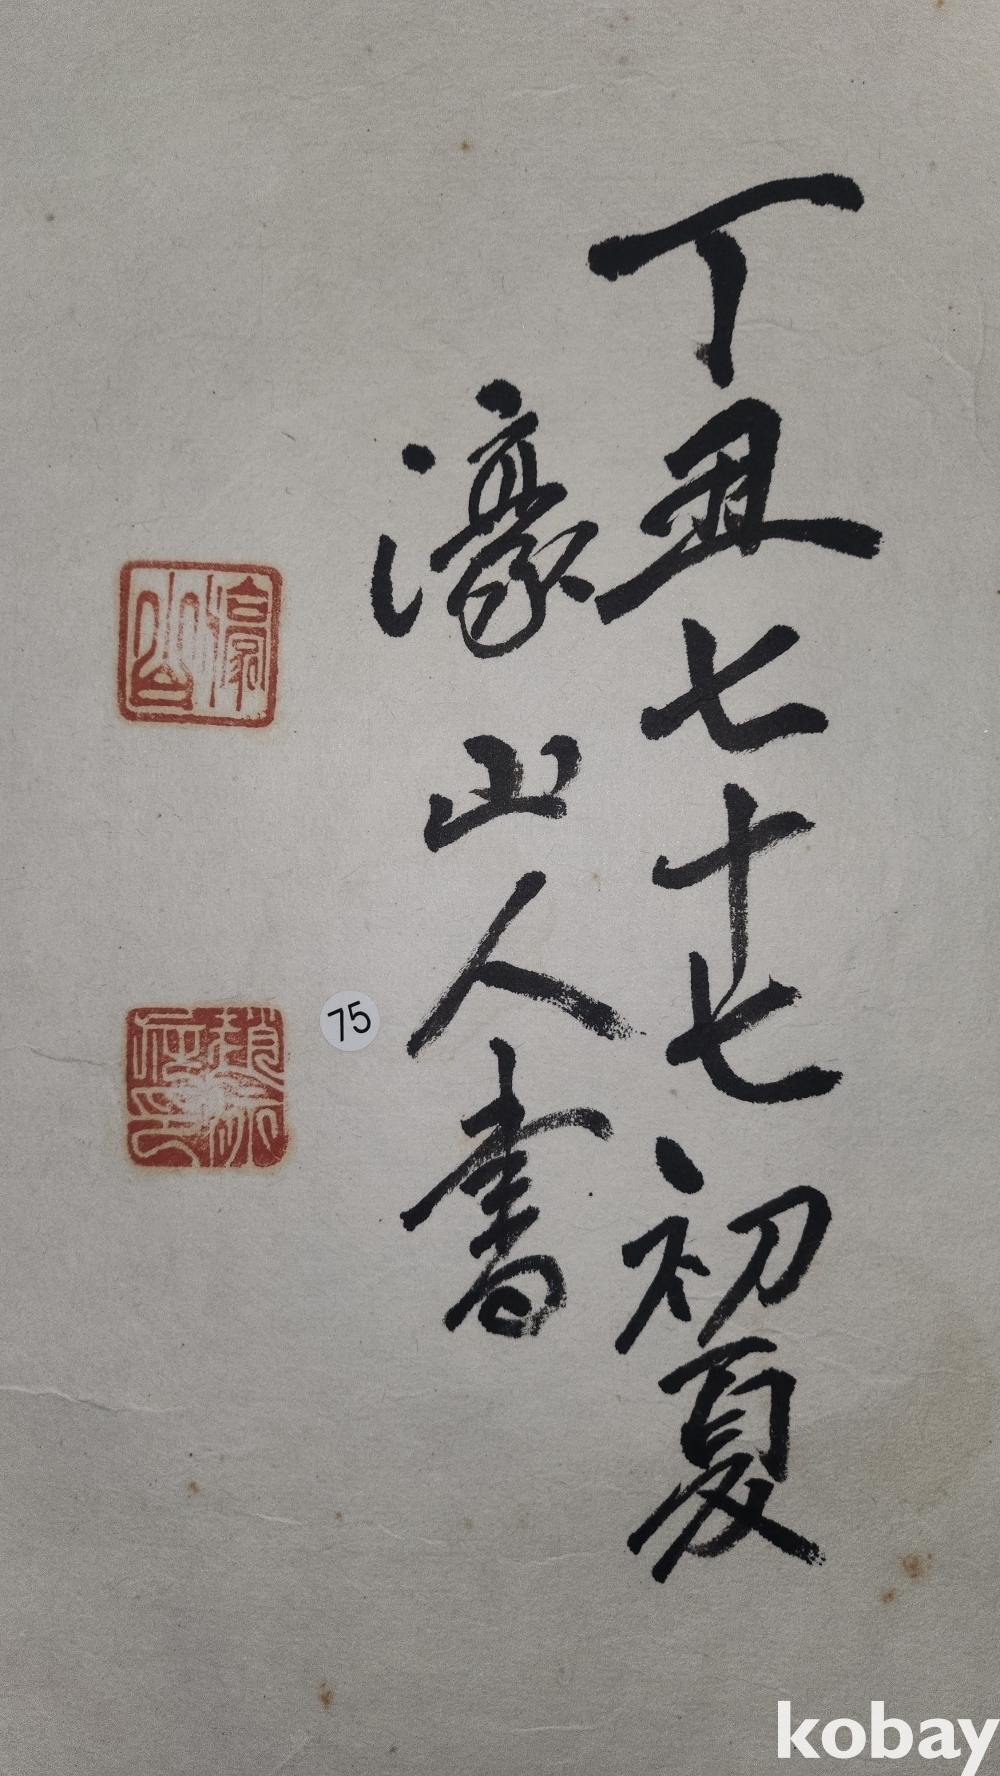 丁丑七十七初夏
濠山人書
濠山
75
kobay